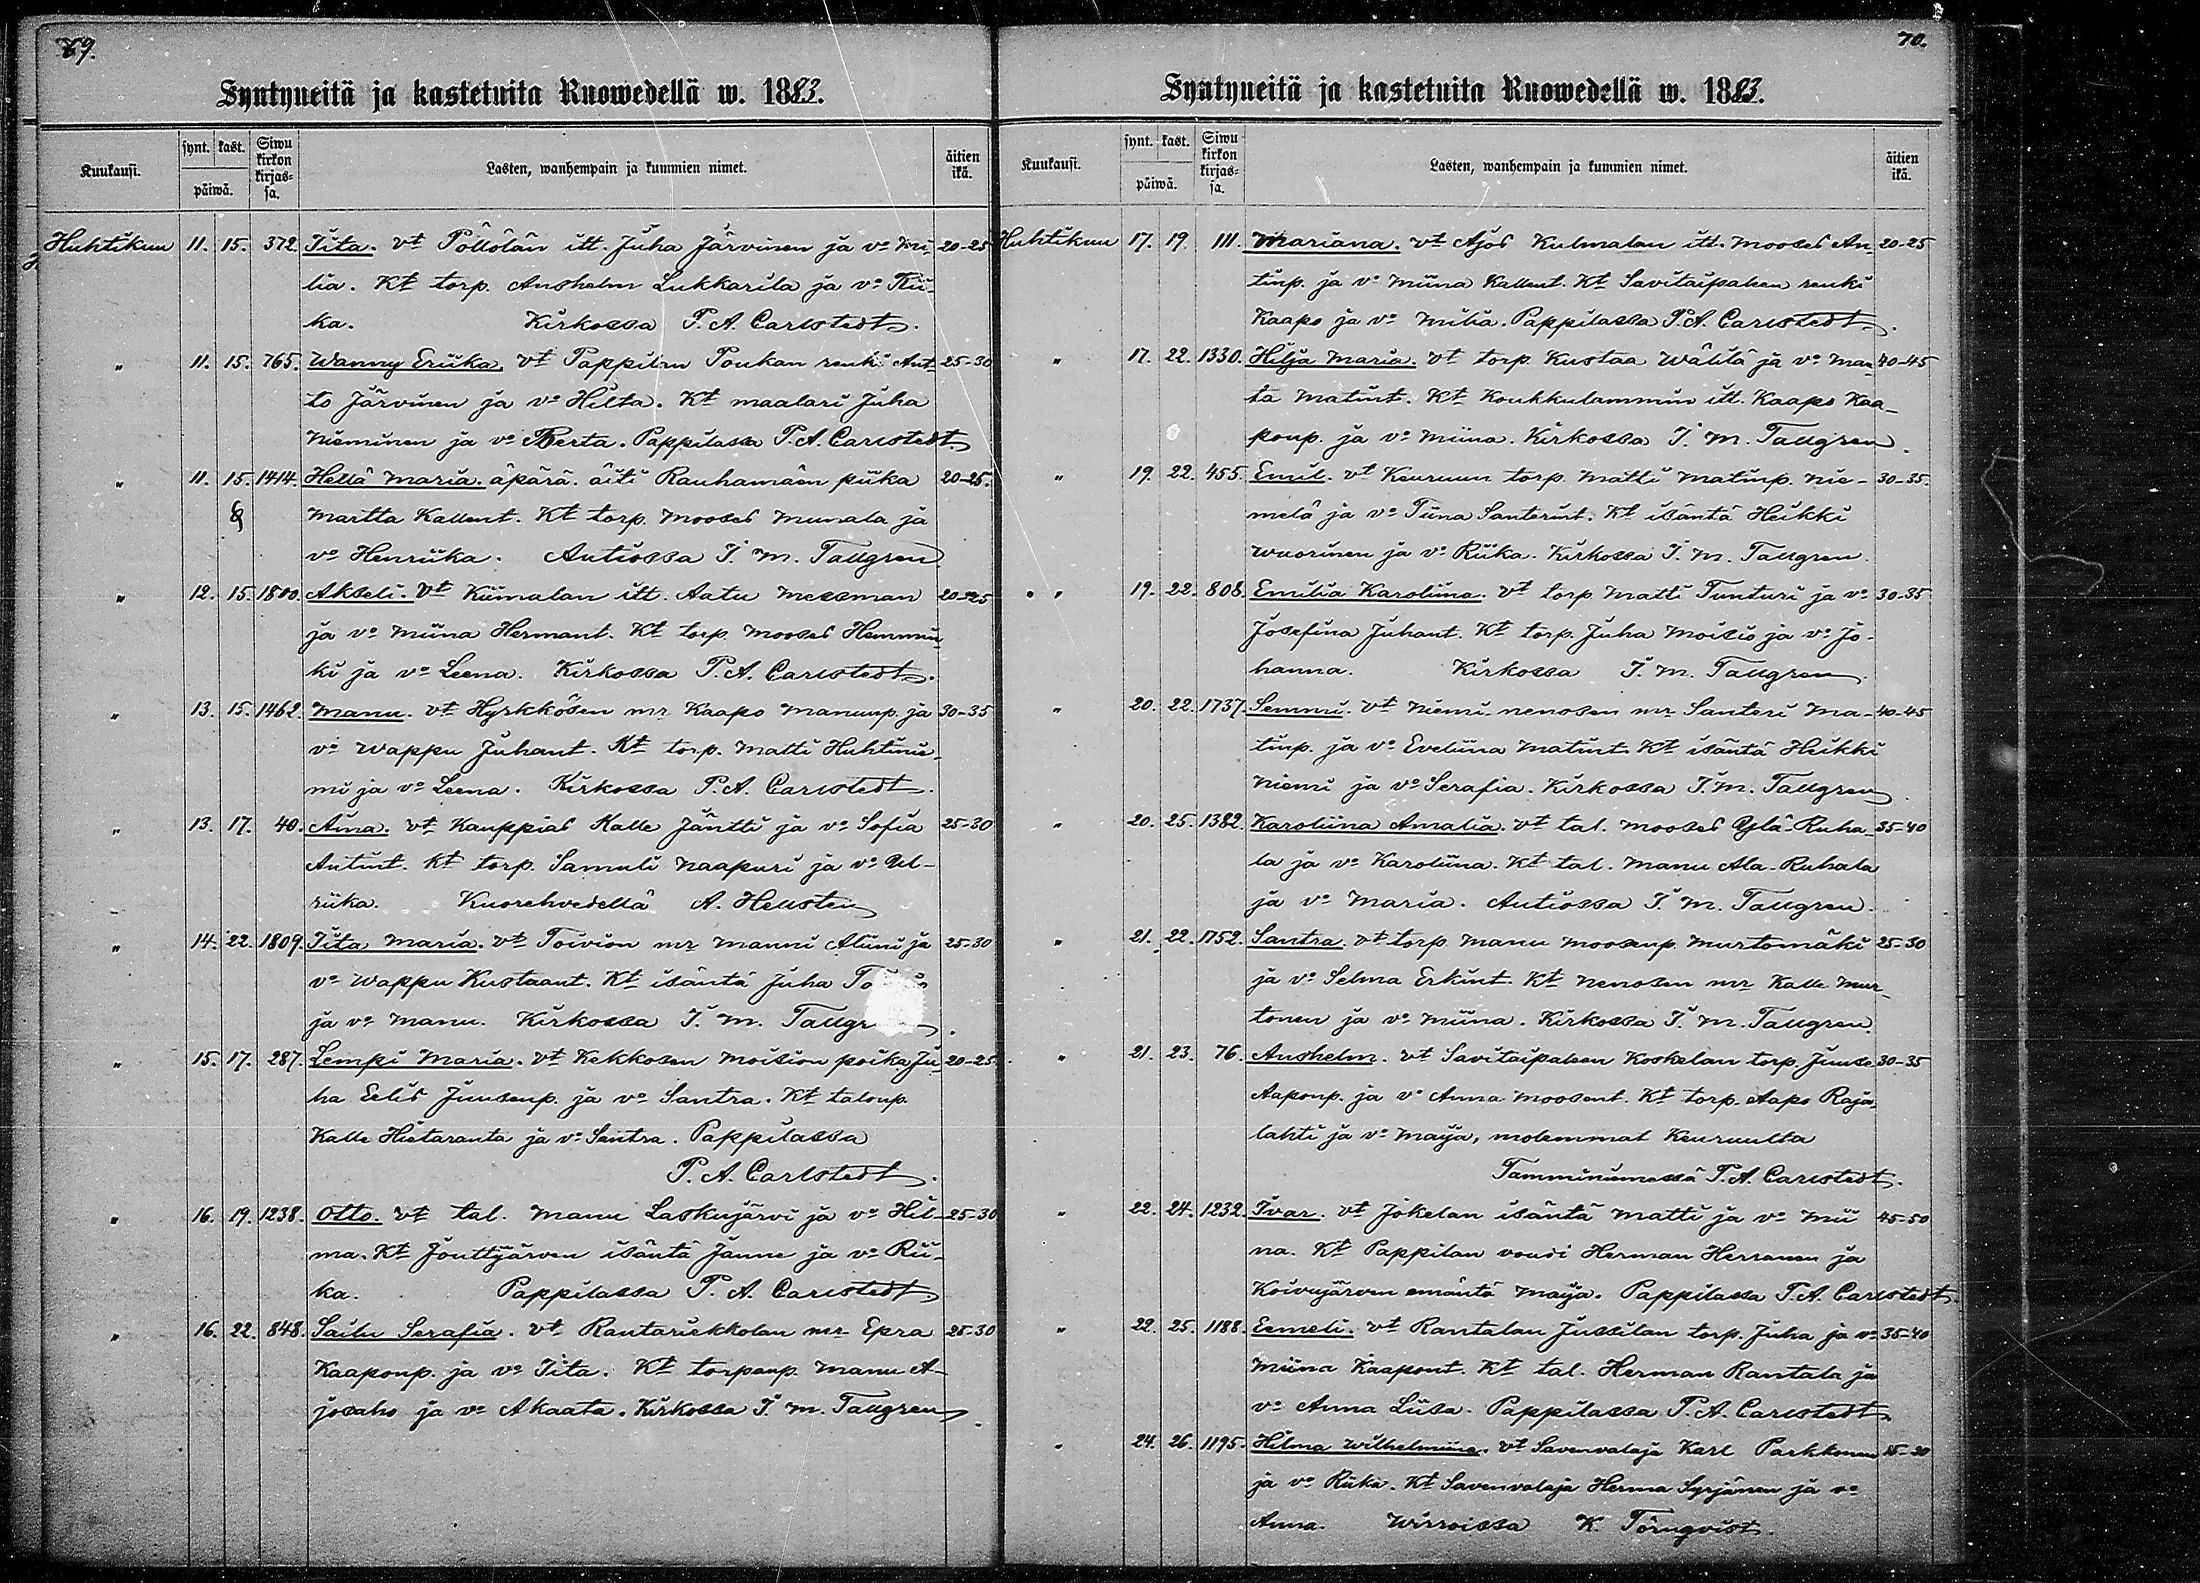 69.
Syntyneitä ja kastetuita Ruowedellä w. 1883.
Kuukausi. synt. kast. päiwä. Siwu kirkon kirjas=sa. Lasten, wanhempain ja kummien nimet. äitien ikä.
Huhtikuu 11. 15. 372. Iita. vt Pöllölän itt. Juha Järvinen ja vo Mi- 20-25
lia. Kt torp. Anshelm Lukkarila ja vo Rii-
ka. Kirkossa P. A. Carlstedt.
" 11. 15. 765. Wanny Eriika. vt Pappilan Poukan renki Ant- 25-30
to Järvinen ja vo Hilta. Kt maalari Juha
Nieminen ja vo Berta. Pappilassa P. A. Carlstedt.
" 11. 15. 1414. Hellä Maria. äpärä. äiti Rauhamäen piika 20-25.
Martta Kallent. Kt torp. Mooses Munala ja
vo Henriika. Autiossa I. M. Tallgren
" 12. 15. 1800. Akseli. vt Kiimalan itt. Aatu Messman 20-25
ja vo Miina Hermant. Kt torp. Mooses Hemmin-
ki ja vo Leena. Kirkossa P. A. Carlstedt.
" 13. 15. 1462. Manu. vt Hyrkkösen mr Kaapo Manunp. ja 30-35
vo Wappu Juhant. Kt torp. Matti Huhtinie-
mi ja vo Leena. Kirkossa P. A. Carlstedt.
" 13. 17. 40. Aina. vt Kauppias Kalle Jäntti ja vo Sofia 25-30
Antint. Kt torp. Samuli Naapuri ja vo Ul-
riika. Kuorehvedellä A. Hellsten
" 14. 22. 1809. Iita Maria. vt Toivion mr Manni Aliini ja 25-30
vo Wappu Kustaant. Kt isäntä Juha
ja vo Manu. Kirkossa I. M. Tallgren.
" 15. 17. 287. Lempi Maria. vt Kekkosen Moision poika Ju- 20-25
ha Eelis Juusenp. ja vo Santra. Kt talonp.
Kalle Hietaranta ja vo Santra. Pappilassa
P. A. Carlstedt.
" 16. 19. 1238. Otto. vt tal. Manu Laskujärvi ja vo Hil- 25-30
ma. Kt Jouttijärven isäntä Janne ja vo Rii-
ka. Pappilassa P. A. Carlstedt.
" 16. 22. 848. Sailu Serafia. vt Rantariekkolan mr Epra 25-30
Kaaponp. ja vo Iita. Kt torpanp. Manu A-
josaho ja vo Akaata. Kirkossa I. M. Tallgren.
70.
Syntyneitä ja kastetuita Ruowedellä w. 1883.
Kuukausi. synt. kast. päiwä. Siwu kirkon kirjas=sa. Lasten, wanhempain ja kummien nimet. äitien ikä.
Huhtikuu 17. 19. 111. Mariana. vt Ajos Kulmalan itt. Mooses An- 20-25
tinp. ja vo Miina Kallent. Kt Savitaipaleen renki
Kaapo ja vo Milia. Pappilassa P. A. Carlstedt.
" 17. 22. 1330. Hilja Maria. vt torp. Kustaa Wälilä ja vo Mar- 40-45
ta Matint. Kt Koukkulammin itt. Kaapo Kaa-
ponp. ja vo Miina. Kirkossa I. M. Tallgren.
" 19. 22. 455. Emil. vt Keuruun torp. Matti Matinp. Nie- 30-35.
melä ja vo Tiina Santerint. Kt isäntä Heikki
Wuorinen ja vo Riika. Kirkossa I. M. Tallgren.
" 19. 22. 808. Emilia Karoliina. vt torp Matti Tunturi ja vo 30-35
Josefina Juhant. Kt torp. Juha Moisio ja vo Jo-
hanna. Kirkossa I. M. Tallgren.
" 20. 22. 1737. Semmi. vt Niemi-nenosen mr Santeri Ma- 40-45
tinp. ja vo Eveliina Matint. Kt isäntä Heikki
Niemi ja vo Serafia. Kirkossa I. M. Tallgren.
" 20. 25. 1382. Karoliina Amalia. vt tal. Mooses Ylä-Ruha- 35-40
la ja vo Karoliina. Kt tal. Manu Ala-Ruhala
ja vo Maria. Autiossa I. M. Tallgren.
" 21. 22. 1752. Santra. vt torp. Manu Moosenp. Murtomäki 25-30
ja vo Selma Erkint. Kt Nenosen mr Kalle Mur-
tonen ja vo Miina. Kirkossa I. M. Tallgren.
" 21. 23. 76. Anshelm. vt Savitaipaleen Koskelan torp. Juuse 30-35
Aaponp. ja vo Anna Moosent. Kt torp. Aapo Raja-
lahti ja vo Maija, molemmat Keuruulta
Tamminiemessä P. A. Carlstedt.
" 22. 24. 1232. Ivar. vt Jokelan isäntä Matti ja vo Mii 45-50
na. Kt Pappilan voudi Herman Herranen ja
Koivujärven emäntä Maija. Pappilassa P. A. Carlstedt.
" 22. 25. 1188. Eemeli. vt Rantalan Jussilan torp. Juha ja vo 35-40
Miina Kaapont. Kt tal. Herman Rantala ja
vo Anna Liisa. Pappilassa P. A. Carlstedt.
" 24. 26. 1195. Hilma Wilhelmiina. vt Savenvalaja Karl Parkkonen
ja vo Riika. Kt Savenvalaja Herma Syrjänen ja vo
Anna. Wirroissa K. Törnqvist.